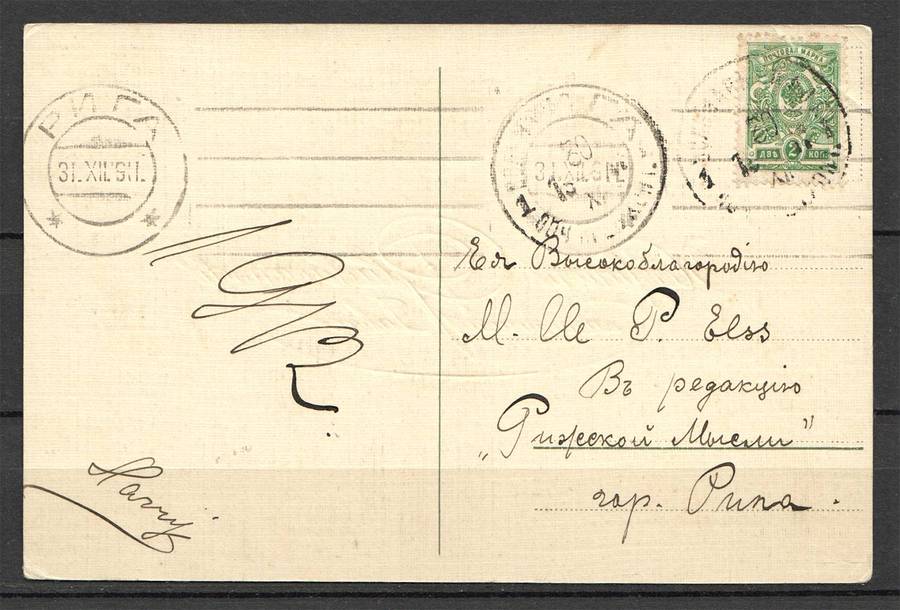 РИГА
31.XII.911.
РИГА
31.XII.911.
ПОЧТОВАЯ МАРКА
ДВѢ 2 КОП.
Ея Высокоблагородію
M-lle P. Elss
Въ редакцію
„Рижской Мысли"
гор. Рига.
Harry